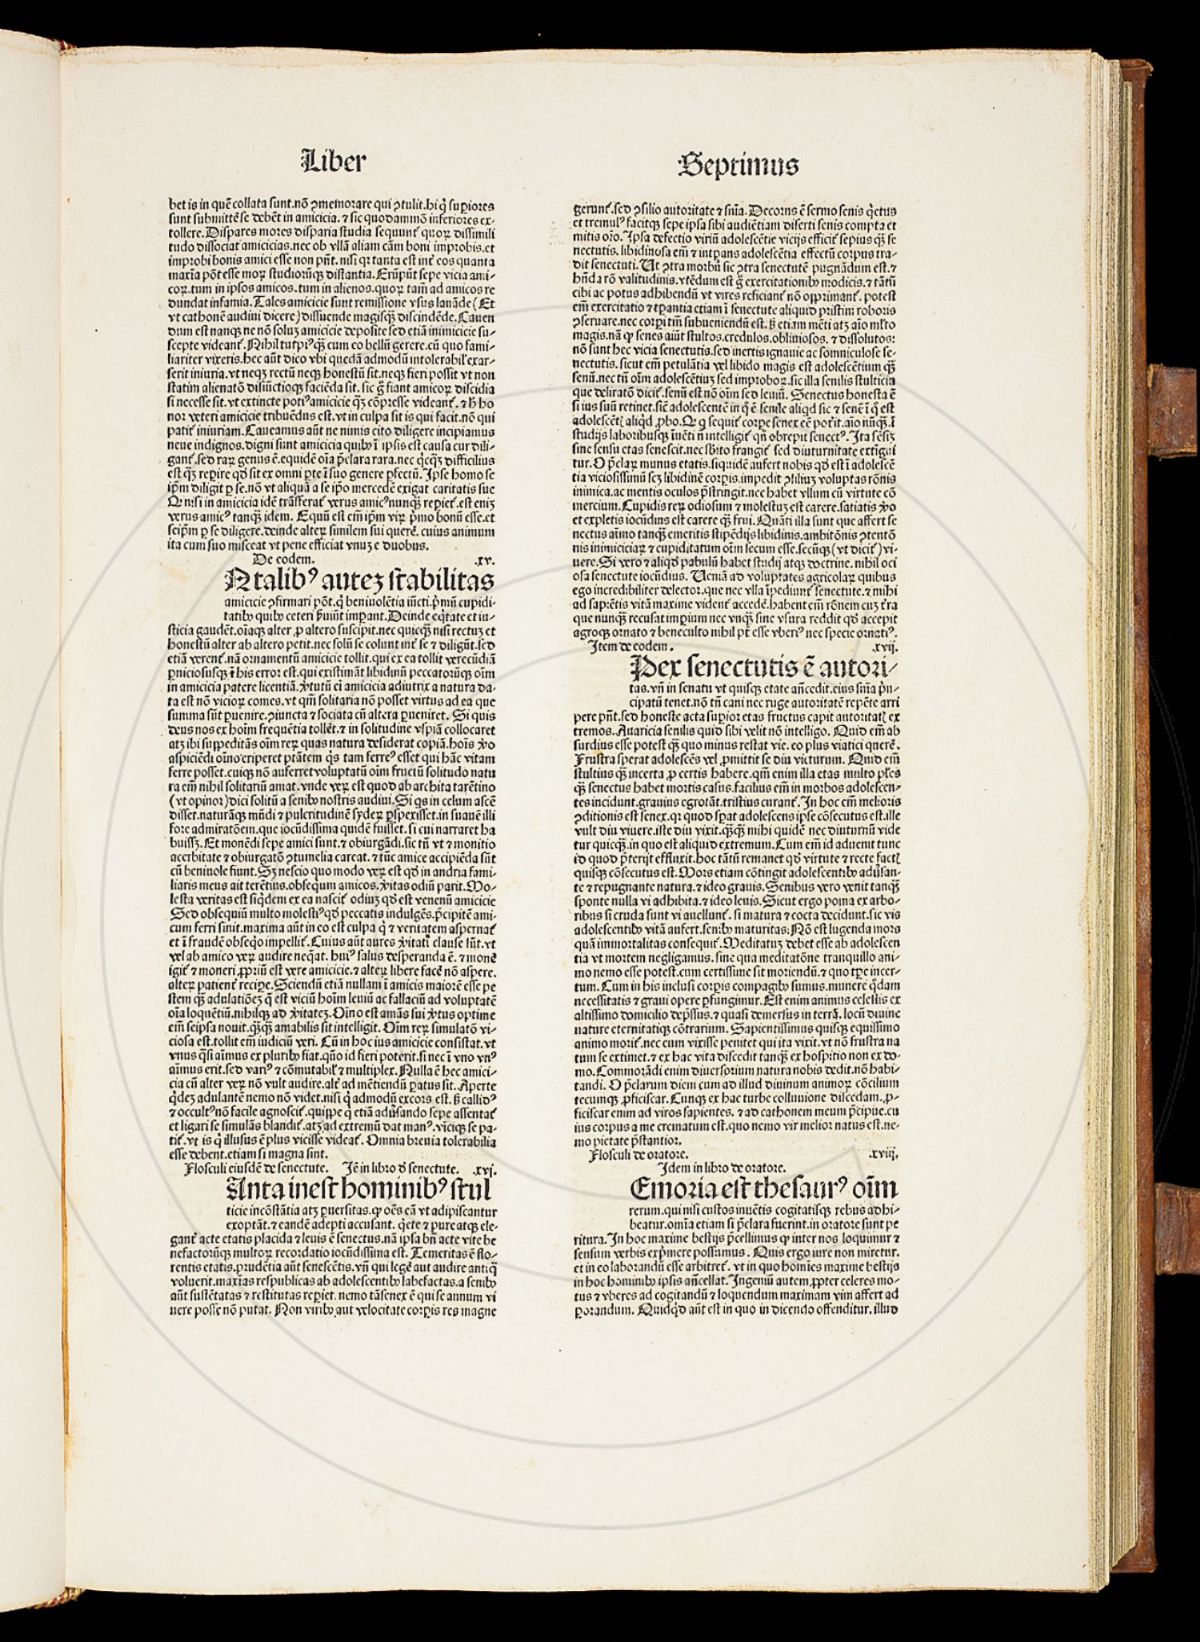 Liber
Septimus
bet is in quē collata sunt.nō ꝯmemorare qui ꝯtulit.hi q̄ superiores
sunt submittē se debēt in amicicia.⁊ sic quodammō inferiores ex-
tollere.Dispares mores disparia studia sequunt᷑ quoꝝ dissimili
tudo dissociat amicicias.nec ob vllā aliam cām boni improbis.et
improbi bonis amici esse non pn̄t.nisi qꝛ tanta est int̄ eos quanta
maxīa pōt esse moꝝ studiorūqꝫ distantia.Erūpūt sepe vicia ami-
coꝝ.tum in ipsos amicos.tum in alienos.quoꝝ tam̄ ad amicos re
dundat infamia.Tales amicicie sunt remissione vsus lauāde (Et
vt cathonē audiui dicere) dissuende magisqꝫ discindēde.Cauen
dum est nanqꝫ ne nō soluꝫ amicicie deposite sed etiā inimicicie su-
scepte videant᷑.Nihil turpiꝰ qꝫ̄ cum eo bellū gerere.cū quo fami-
liariter vixeris.hec aūt dico vbi quedā admodū intolerabil᷑ exar-
serit iniuria.vt neqꝫ rectū neqꝫ honestū sit.neqꝫ fieri possit vt non
statim alienatō disiūctioqꝫ faciēda sit.sic ḡ fiant amicoꝝ discidia
si necesse sit.vt extincte potiꝰ amicicie qꝫ̄ cōpresse videant᷑.⁊ h̄ ho
nor veteri amicicie tribuēdus est.vt in culpa sit is qui facit.nō qui
patit᷑ iniuriam.Caueamus aūt ne nimis cito diligere incipiamus
neue indignos.digni sunt amicicia quibꝫ ī ipsis est causa cur dili-
gant᷑.sed raꝝ genus ē.equidē oīa p̄clara rara.nec qc̄qꝫ difficilius
est qꝫ̄ reꝑire qd̄ sit ex omni ꝑte ī suo genere ꝑfectū.Ipse homo se
ip̄m diligit ꝑ se.nō vt aliquā a se ip̄o mercedē exigat caritatis sue
Qꝫ nisi in amicicia idē trāsferat᷑ verus amicꝰ nunqꝫ̄ reꝑiet᷑.est eniꝫ
verus amicꝰ tanqꝫ̄ idem. Equū est eīm ip̄m viꝝ p̄mo bonū esse.et
seip̄m ꝑ se diligere.deinde alteꝝ similem sui querē.cuius animum
ita cum suo misceat vt pene efficiat vnuꝫ e duobus.
De eodem. .xv.
N talibꝰ auteꝫ stabilitas
amicicie ꝯfirmari pōt.q̄ beniuolētia iūcti.p̄mū cupidi-
tatibꝫ quibꝫ ceteri ẜuiūt imꝑant.Deinde eq̄tate et iu-
sticia gaudēt.oīaqꝫ alter ꝓ altero suscipit.nec quicqꝫ̄ nisi rectuꝫ et
honestū alter ab altero petit.nec solū se colunt int̄ se ⁊ diligūt.sed
etiā verent᷑.nā ornamentū amicicie tollit.qui ex ea tollit verecūdiā
ꝑniciosusqꝫ ī his error est.qui existimāt libidinū peccatorūqꝫ oīm
in amicicia patere licentiā.v̓tutū eīm amicicia adiutrix a natura da-
ta est nō vicioꝝ comes.vt qm̄ solitaria nō posset virtus ad ea que
summa sūt ꝑuenire.ꝯiuncta ⁊ sociata cū altera ꝑueniret. Si quis
deus nos ex hoīm frequētia tollēt.⁊ in solitudine vspiā collocaret
atqꝫ ibi suppeditās oīm reꝝ quas natura desiderat copiā.hoīs v̓o
aspiciēdi oīno eriperet ptātem qꝫ̄s tam ferreꝰ esset qui hāc vitam
ferre posset.cuiqꝫ nō auferret voluptatū oīm fructū solitudo natu
ra eīm nihil solitariū amat.vnde veꝝ est quod ab archita tarētino
(vt opinor)dici solitū a senibꝫ nostris audiui.Si qs in celum ascē
disset.naturāqꝫ mūdi ⁊ pulcritudinē sydeꝝ ꝑspexisset.insuauē illi
fore admiratōem.que iocūdissima quidē fuisset.si cui narraret ha
buissꝫ. Et monēdi sepe amici sunt.⁊ obiurgādi.sic tn̄ vt ⁊ monitio
acerbitate ⁊ obiurgatō ꝯtumelia careat.⁊ tūc amice accipiēda sūt
cū beniuole fiunt.Sꝫ nescio quo modo veꝝ est qd̄ in andria fami-
liaris meus ait terētius.obsequm amicos.v̓itas odiū parit.Mo-
lesta veritas est siq̄dem ex ea nascit᷑ odiuꝫ qd̄ est venenū amicicie
Sed obsequiū multo molestiꝰ qd̄ peccatis indulgēs.p̄cipitē ami-
cum ferri sinit.maxima aūt in eo est culpa q̄ ⁊ veritatem aspernat᷑
et ī fraudē obseq̄o impellit᷑.Cuius aūt aures v̓itati clause sūt.vt
vel ab amico veꝝ audire neq̄at.huiꝰ salus desperanda ē.⁊ monē
igit᷑ ⁊ moneri ꝓpriū est vere amicicie.⁊ alteꝝ libere facē nō aspere.
alteꝝ patient᷑ recipe.Sciendū etiā nullam ī amicis maiorē esse pe
stem qꝫ̄ adulatōeꝫ q̄ est viciū hoīm leuiū ac fallaciū ad voluptatē
oīa loquētiū.nihilqꝫ ad v̓itateꝫ.Oīno est amās sui v̓tus optime
eīm seipsa nouit.qꝫ̄qꝫ̄ amabilis sit intelligit. Oīm reꝝ simulatō vi-
ciosa est.tollit eīm iudiciū veri. Cū in hoc ius amicicie consistat.vt
vnus qs̄i aīmus ex pluribꝫ fiat.quō id fieri poterit.si nec ī vno vnꝰ
aīmus erit.sed variꝰ ⁊ cōmutabil᷑ ⁊ multiplex.Nulla ē hec amici-
cia cū alter veꝝ nō vult audire.alt̄ ad mētiendū ꝑatus sit. Aperte
q̄deꝫ adulantē nemo nō videt.nisi q̄ admodū excors est.ẜꝫ callidꝰ
⁊ occultꝰ nō facile agnoscit᷑.quippe q̄ etiā adūsando sepe assentat᷑
et ligari se simulās blandit᷑.atqꝫ ad extremū dat manꝰ.vīciqꝫ se pa-
tit᷑.vt is q̄ illusus ē plus vicisse videat᷑. Omnia breuia tolerabilia
esse debent.etiam si magna sint.
Flosculi eiusdē de senectute. Jē in libro d̄ senectute. .xvj.
Anta inest hominibꝰ stul
ticie incōstātia atqꝫ ꝑuersitas.qꝫ oēs eā vt adipiscantur
exoptāt.⁊ eandē adepti accusant. q̄ete ⁊ pure atqꝫ ele-
gant᷑ acte etatis placida ⁊ leuis ē senectus.nā ipsa bn̄ acte vite be
nefactorūqꝫ multoꝝ recordatio iocūdissima est. Temeritas ē flo-
rentis etatis.prudētia aūt senescētis.vn̄ qui legē aut audire antiq̄
voluerit.maxīas respublicas ab adolescentibꝫ labefactas.a senibꝫ
aūt sustētatas ⁊ restitutas reꝑiet.nemo tā senex ē qui se annum vi
uere posse nō putat. Non viribꝫ aut velocitate corꝑis res magne
gerunt᷑.sed ꝯsilio autoritate ⁊ sn̄ia. Decorus ē sermo senis q̄etus
et tremulꝰ facitqꝫ sepe ipsa sibi audiētiam diserti senis compta et
mitis orō.Ipsa defectio viriū adolescētie vicijs efficit᷑ sepius qꝫ̄ se
nectutis.libidinosa eīm ⁊ intꝑans adolescētia effectū corpus tra-
dit senectuti. Ut ꝯtra morbū sic ꝯtra senectutē pugnādum est.⁊
hn̄da rō valitudinis.vtēdum est ḡ exercitationibꝫ modicis.⁊ tātū
cibi ac potus adhibendū vt vires reficiant᷑ nō opprimant᷑. potest
eīm exercitatio ⁊ tꝑantia etiam ī senectute aliquid pristini roboris
ꝯseruare.nec corꝑi tm̄ subueniendū est.ẜꝫ etiam mēti atqꝫ aīo mlto
magis.nā qꝫ senes aiūt stultos.credulos.obliuiosos. ⁊ dissolutos:
nō sunt hec vicia senectutis.sed inertis ignauie ac somniculose se-
nectutis.sicut eīm petulātia vel libido magis est adolescētium qꝫ̄
senū.nec tn̄ oīm adolescētiuꝫ sed improboꝝ.sic illa senilis stulticia
que deliratō dicit᷑.senū est nō oīm sed leuiū. Senectus honesta ē
si ius suū retinet.sic̄ adolescentē in q̄ ē senile aliqd̄ sic ⁊ senē ī q̄ est
adolescētꝭ aliqd̄ ꝓbo.Qꝫ q sequit᷑ corpe senex eē poterit.aīo nūqꝫ̄.ī
studijs laboribusqꝫ iuēti nō intelligit᷑ qn̄ obrepit senectꝰ.Ita sēsiꝫ
sine sensu etas senescit.nec sb̄ito frangit᷑ sed diuturnitate extīgui
tur.O p̄claꝝ munus etatis.siquidē aufert nobis qd̄ est ī adolescē
tia viciosissimū seꝫ libidinē corꝑis.impedit ꝯsiliuꝫ voluptas rōnis
inimica.ac mentis oculos p̄stringit.nec habet vllum cū virtute cō
mercium.Cupidis reꝝ odiosum ⁊ molestuꝫ est carere.satiatis v̓o
et expletis iocūdius est carere qꝫ̄ frui. Quāti illa sunt que affert se
nectus aīmo tanqꝫ̄ emeritis stipēdijs libidinis.ambitōnis ꝯtentō
nis inimiciciaꝝ ⁊ cupiditatum oīm secum esse.secūqꝫ (vt dicit᷑) vi-
uere.Si vero ⁊ aliqd̄ pabulū habet studij atqꝫ doctrine.nihil oci
osa senectute iocūdius. Ueniā ad voluptates agricolaꝝ quibus
ego incredibiliter delector.que nec vlla īpediunt᷑ senectute.⁊ mihi
ad sapiētis vitā maxime vident᷑ accedē.habent eīm rōnem cuꝫ t̄ra
que nunqꝫ̄ recusat imꝑium nec vnqꝫ̄ sine vsura reddit qd̄ accepit
agroqꝫ ornato ⁊ beneculto nihil pt̄ esse vberiꝰ nec specie ornatiꝰ.
Item de eodem. .xvij.
Pex senectutis ē autori-
tas.vn̄ in senatu vt quisqꝫ etate an̄cedit.eius sn̄ia p̄n-
cipatū tenet.nō tn̄ cani nec ruge autoritatē repēte arri
pere pn̄t.sed honeste acta superior etas fructus capit autoritatꝭ ex
tremos. Auaricia senilis quid sibi velit nō intelligo. Quid eīm ab
surdius esse potest qꝫ̄ quo minus restat vie.eo plus viatici querē.
Frustra sperat adolescēs vel ꝓmittit se diu victurum. Quid eīm
stultius qꝫ̄ incerta ꝓ certis habere.qm̄ enim illa etas multo pl̄es
qꝫ̄ senectus habet mortis casus.facilius eīm in morbos adolescen-
tes incidunt.grauius egrotāt.tristius curant᷑.In hoc eīm melioris
ꝯditionis est senex.qꝛ quod sꝑat adolescens ip̄se cōsecutus est.ille
vult diu viuere.iste diu vixit.qꝫ̄qꝫ̄ mihi quidē nec diuturnū vide
tur quicqꝫ̄.in quo est aliquid extremum. Cum eīm id aduenit tunc
id quod p̄terijt effluxit.hoc tātū remanet qd̄ virtute ⁊ recte factꝭ
quisqꝫ cōsecutus est.Mors etiam cōtingit adolescentibꝫ adūsan-
te ⁊ repugnante natura.⁊ ideo grauis. Senibus vero venit tanqꝫ̄
sponte nulla vi adhibita.⁊ ideo leuis. Sicut ergo poma ex arbo-
ribus si cruda sunt vi auellunt᷑.si matura ⁊ cocta decidunt.sic vis
adolescentibꝫ vitā aufert.senibꝫ maturitas: Nō est lugenda mors
quā immortalitas consequit᷑. Meditatuꝫ debet esse ab adolescen
tia vt mortem negligamus.sine qua meditatōne tranquillo ani-
mo nemo esse potest.cum certissime sit moriendū.⁊ quo tꝑe incer-
tum.Cum in his inclusi corꝑis compagibꝫ sumus.munere q̄dam
necessitatis ⁊ graui opere ꝑfungimur.Est enim animus celestis ex
altissimo domicilio dep̄ssus.⁊ quasi demersus in terrā.locū diuine
nature eternitatiqꝫ cōtrarium. Sapientissimus quisqꝫ equissimo
animo morit᷑.nec eum vixisse penitet qui ita vixit.vt nō frustra na
tum se extimet.⁊ ex hac vita discedit tanqꝫ̄ ex hospitio non ex do-
mo.Commorādi enim diuersorium natura nobis dedit.nō habi-
tandi. O p̄clarum diem cum ad illud diuinum animoꝝ cōcilium
cetumqꝫ ꝓficiscar.Cunqꝫ ex hac turbe colluuione discedam.ꝓ-
ficiscar enim ad viros sapientes.⁊ ad cathonem meum p̄cipue.cu
ius corpus a me crematum est.quo nemo vir melior natus est.ne-
mo pietate p̄stantior.
Flosculi de oratore. .xviij.
Idem in libro de oratore.
Emoria est thesaurꝰ oīm
rerum.qui nisi custos inuētis cogitatisqꝫ rebus adhi-
beatur.omīa etiam si p̄clara fuerint.in oratore sunt pe
ritura.In hoc maxime bestijs p̄cellimus qꝫ inter nos loquimur ⁊
sensum verbis exp̄mere possumus. Quis ergo iure non miretur.
et in eo laborandū esse arbitret᷑. vt in quo homīes maxime bestijs
in hoc hominibꝫ ipsis an̄cellat.Ingeniū autem ꝓpter celeres mo-
tus ⁊ vberes ad cogitandū ⁊ loquendum maximam vim affert ad
ꝑorandum. Quidqd̄ aūt est in quo in dicendo offenditur.illud